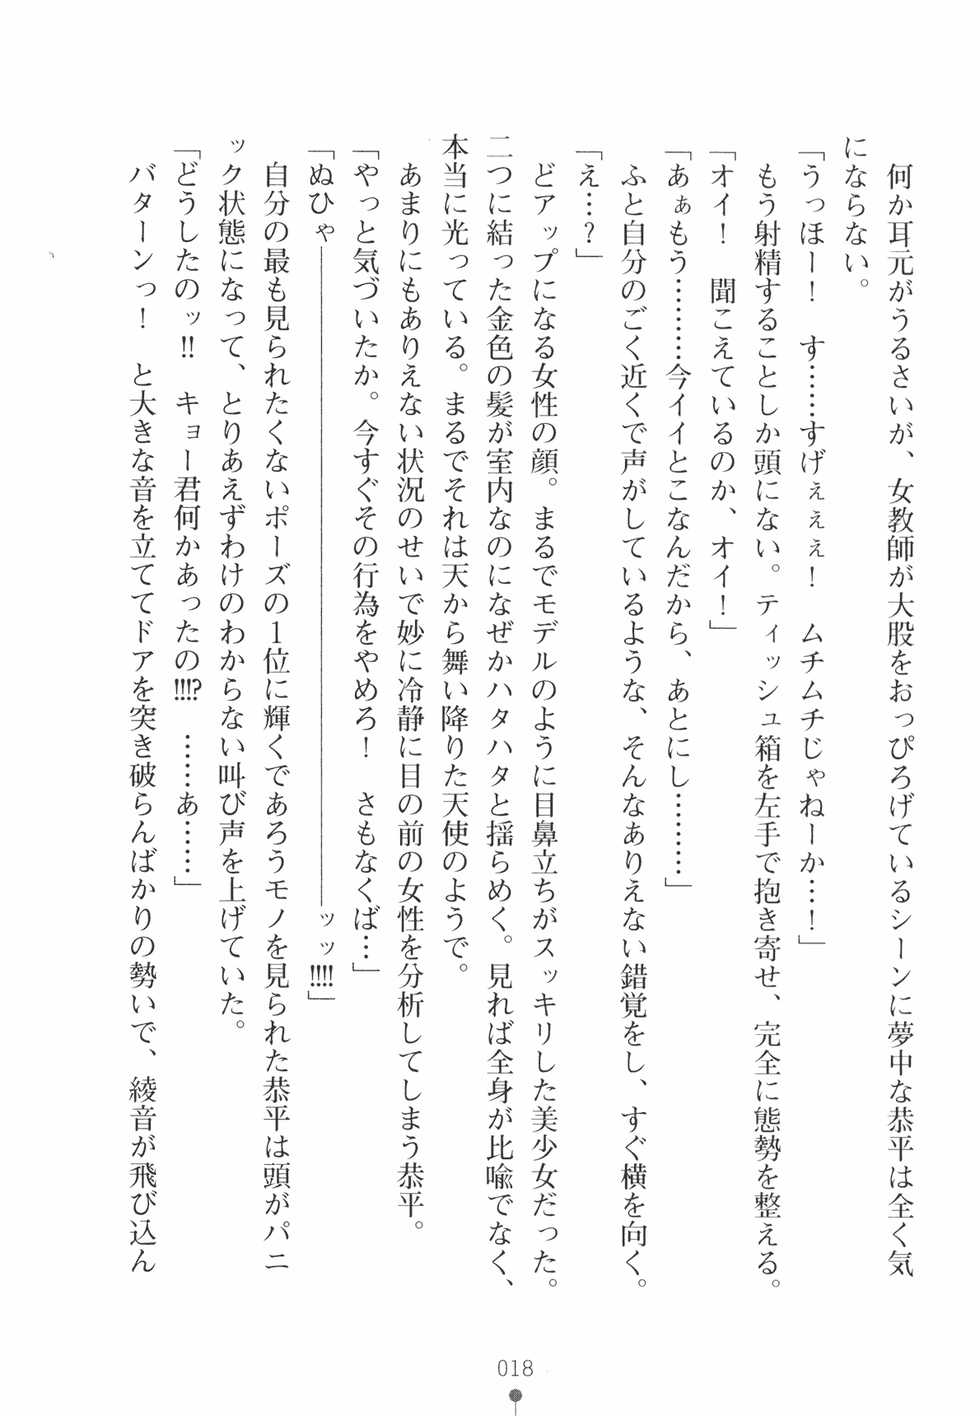 何か耳元がうるさいが、女教師が大股をおっぴろげているシーンに夢中な恭平は全く気
にならない。
「うっほー！　す……すげぇぇぇ！　ムチムチじゃねーか…！」
もう射精することしか頭にない。ティッシュ箱を左手で抱き寄せ、完全に態勢を整える。
「オイ！　聞こえているのか、オイ！」
「あぁもう………今イイとこなんだから、あとにし………」
ふと自分のごく近くで声がしているような、そんなありえない錯覚をし、すぐ横を向く。
「え…？」
どアップになる女性の顔。まるでモデルのように目鼻立ちがスッキリした美少女だった。
二つに結った金色の髪が室内なのになぜかハタハタと揺らめく。見れば全身が比喩でなく、
本当に光っている。まるでそれは天から舞い降りた天使のようで。
あまりにもありえない状況のせいで妙に冷静に目の前の女性を分析してしまう恭平。
「やっと気づいたか。今すぐその行為をやめろ！　さもなくば…」
「ぬひゃ――――――――――――――――――――――ッッ!!!!」
自分の最も見られたくないポーズの１位に輝くであろうモノを見られた恭平は頭がパニ
ック状態になって、とりあえずわけのわからない叫び声を上げていた。
「どうしたのッ!!　キョー君何かあったの!!!?　……あ……」
バターンっ！　と大きな音を立ててドアを突き破らんばかりの勢いで、綾音が飛び込ん
018